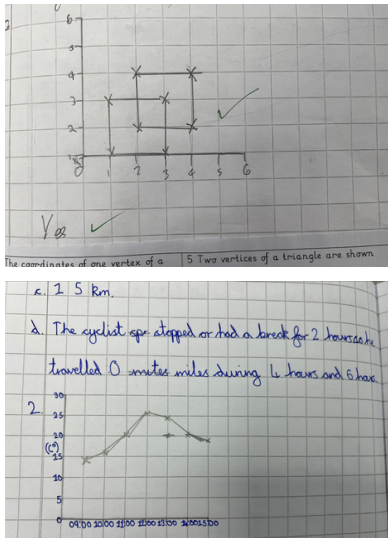 6
5
4
3
2
1
0 1 2 3 4 5 6
Yes
The coordinates of one vertex of a
5 Two vertices of a triangle are shown
c. 1 5 km.
d. The cyclist stopped or had a break for 2 hours
travelled 0 miles during 4 hours and 6
2.
30
25
20
(C°)
15
10
5
0
09:00 10:00 11:00 12:00 13:00 14:00 15:00